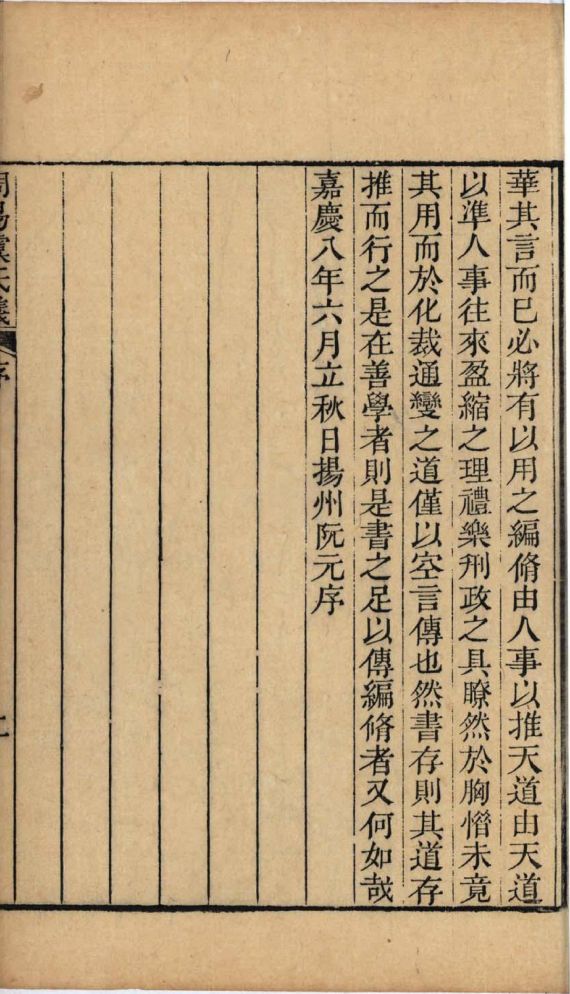 華其言而已必將有以用之編脩由人事以推天道由天道
以準人事往來盈縮之理禮樂刑政之具瞭然於胸㦧未竟
其用而於化裁通變之道僅以空言傳也然書存則其道存
推而行之是在善學者則是書之足以傳編脩者又何如哉
嘉慶八年六月立秋日揚州阮元序
周易虞氏義
序
二